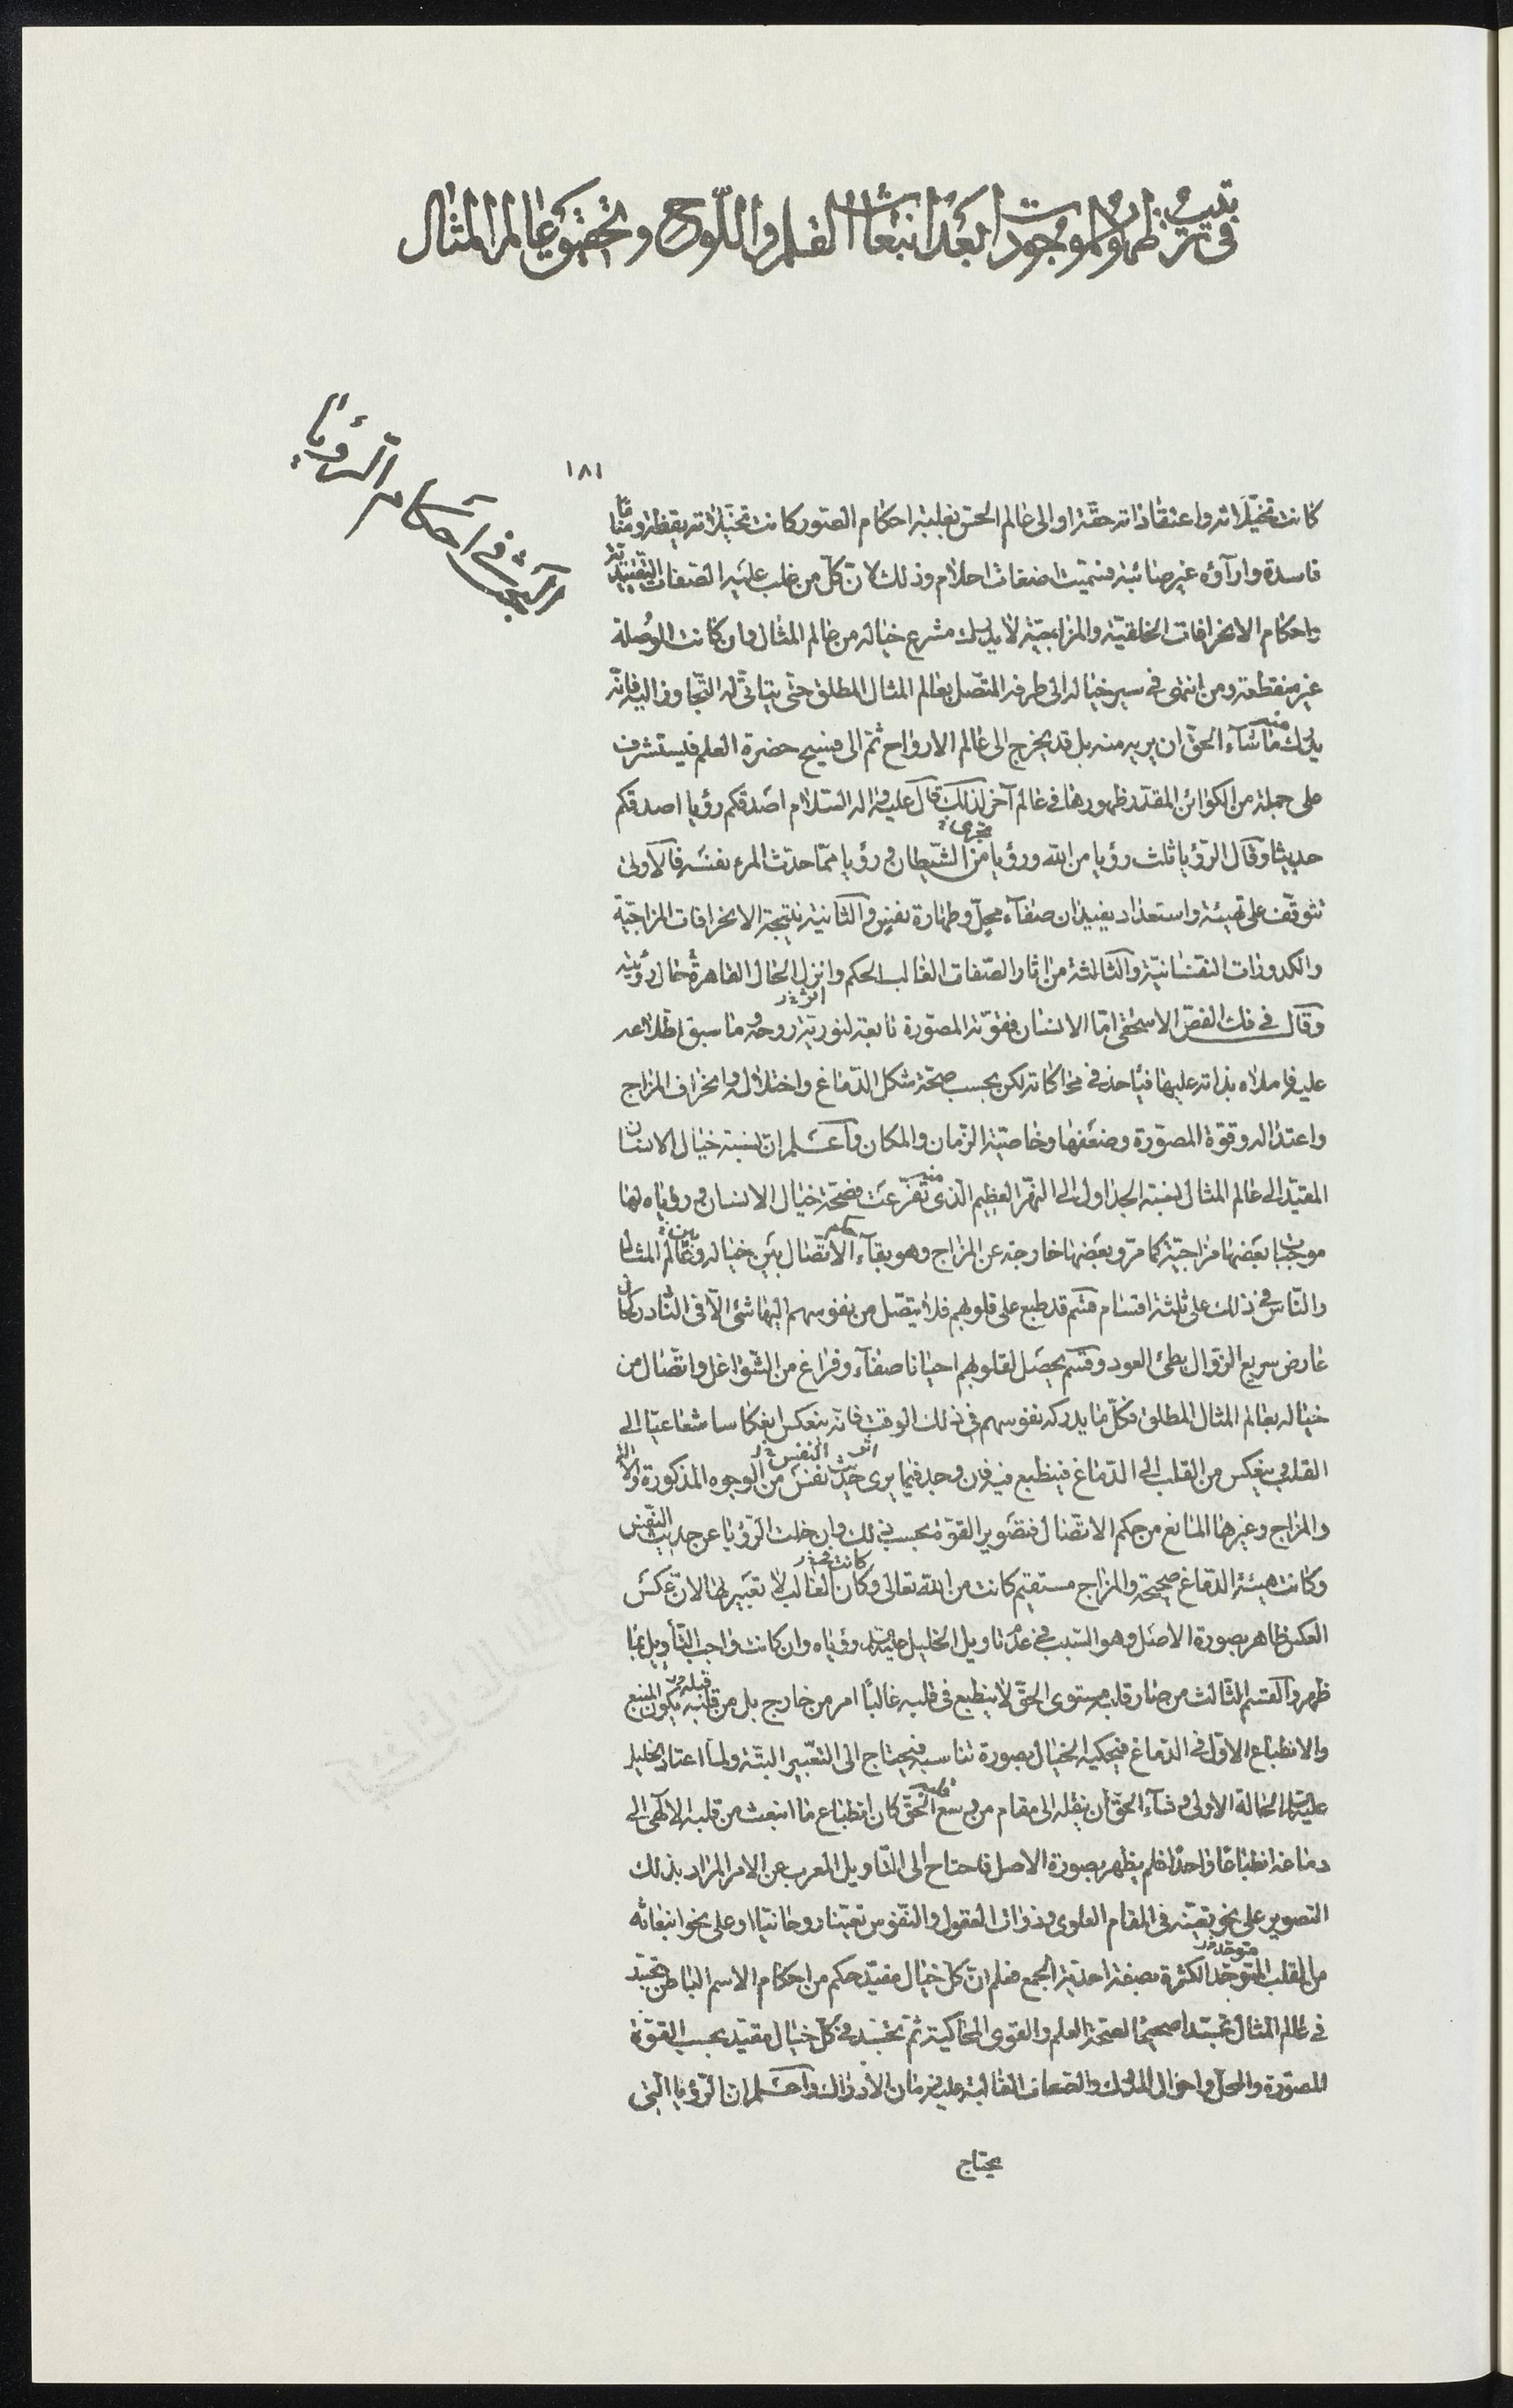 فى ترتيب ظهور الموجودات بعد انبعاث القلم واللّوح وتحقيق عالم المثال
١٨١
مبحث فى احكام الرّؤيا
كانت تخيّلاته واعتقاداته حقّة او الى عالم الحسّ بغلبة احكام الصّور كانت تخيّلاته يقظة ومناما
فاسدة وارآؤه غير صائبة فسمّيت اضغاث احلام وذلك لانّ كلّ من غلب عليه الصّفات التّقييديّة
واحكام الانحرافات الخلقيّة والمزاجيّة لا يدرك مشرع خياله من عالم المثال وان كانت الوُصلة
غير منقطعة ومن انتهى فى سير خياله الى طرفه المتّصل بعالم المثال المطلق حتّى يتاتّى له التّجاوز اليه فانّه
يدرك ما شآء الحقّ ان يريه منه بل قد يخرج الى عالم الارواح ثمّ الى فسيح حضرة العلم فيستشرف
على جملة من الكوائن المقدّر ظهورها فى عالم آخر لذلك قال عليه وآله السّلام اصدقكم رؤيا اصدقكم
حديثا وقال الرّؤيا ثلث رؤيا من الله ورؤيا من الشّيطان ورؤيا ممّا حدّث المرء نفسه فالاولى
تتوقّف على تهيئة واستعداد يفيدان صفآء محلّ وطهارة نفس والثانية نتيجة الانحرافات المزاجيّة
والكدورات النفسانيّة والثالثة من اثار الصّفات الغالب الحكم وانزل الحال القاهرة حال رؤيته
وقال فى فكّ الفصّ الاسحقى امّا الانسان فقوّته المصوّرة تابعة لنوريّة روحه وما سبق اطّلاعه
عليه واملاه بذاته عليها فياخذ فى محاكاته لكن بحسب صحّة شكل الدّماغ واختلاله وانحراف المزاج
واعتداله وقوّة المصوّرة وضعفها وخاصيّة الزّمان والمكان واعلم ان نسبة خيال الانسان
المقيّد الى عالم المثال نسبة الجداول الى النهر العظيم الذى تفرّعت منه فصحّة خيال الانسان ورؤياه لها
موجبات بعضها مزاجيّة كما مرّ وبعضها خارجة عن المزاج وهو بقآء حكم الاتّصال بين خياله وبين عالم المثال
والنّاس فى ذلك على ثلثة اقسام قسم قد طبع على قلوبهم فلا يتّصل من نفوسهم اليها شئ الّا فى النّادر كان
عارض سريع الزّوال بطئ العود وقسم يحصل لقلوبهم احيانا صفآء وفراغ من الشّواغل واتّصال من
خياله بعالم المثال المطلق فكلّ ما يدركه نفوسهم فى ذلك الوقت فانّه ينعكس انعكاسا شعاعيّا الى
القلب وينعكس من القلب الى الدّماغ فينطبع فيه فان وجد فيما يرى اثر حديث النفس من الوجوه المذكورة والالة
والمزاج وغيرها المانع من حكم الاتّصال فتصوير القوّة بحسب ذلك وان خلت الرّؤيا عن حديث النّفس
وكانت هيئة الدّماغ صحيحة والمزاج مستقيم كانت من الله تعالى وكانت فى الغالب لا تعبير لها لانّ عكس
العكس ظاهر بصورة الاصل وهو السّبب فى عدم تاويل الخليل عليه السلام رؤياه وان كانت واجب التّأويل بما
ظهر والقسم الثّالث من صار قلبه مستوى الحقّ لا ينطبع فى قلبه غالباً امر من خارج بل من قلبه يكون المنبع
والانطباع الاوّل فى الدّماغ فيحكيه الخيال بصورة تناسبه فيحتاج الى التعبير البتّة ولما اعتاد الخليل
عليه السلام الحالة الاولى وشآء الحقّ ان ينقله الى مقام من وسع قلبه الحقّ كان انطباع ما انبعث من قلبه الالهى الى
دماغه انطباعا واحدا فلم يظهر بصورة الاصل فاحتاج الى التّاويل المعرب عن الامر المراد بذلك
التصوير على نحو تعيّنه فى المقام العلوى وذوات العقول والنّفوس تعيّنا روحانيّا او على نحو انبعاثه
من القلب المتوحّد الكثرة بصفة احديّة الجمع فعلم انّ كلّ خيال مقيّد حكم من احكام الاسم الباطن تجسّد
فى عالم المثال تجسّدا صحيحا لصحّة العلم والقوى المحاكية ثمّ تجسّد فى كلّ خيال مقيّد بحسب القوّة
المصوّرة والمحلّ واحوال المدرك والصّفات الغالبة عليه زمان الادراك واعلم ان الرّؤيا الّتى
يحتاج